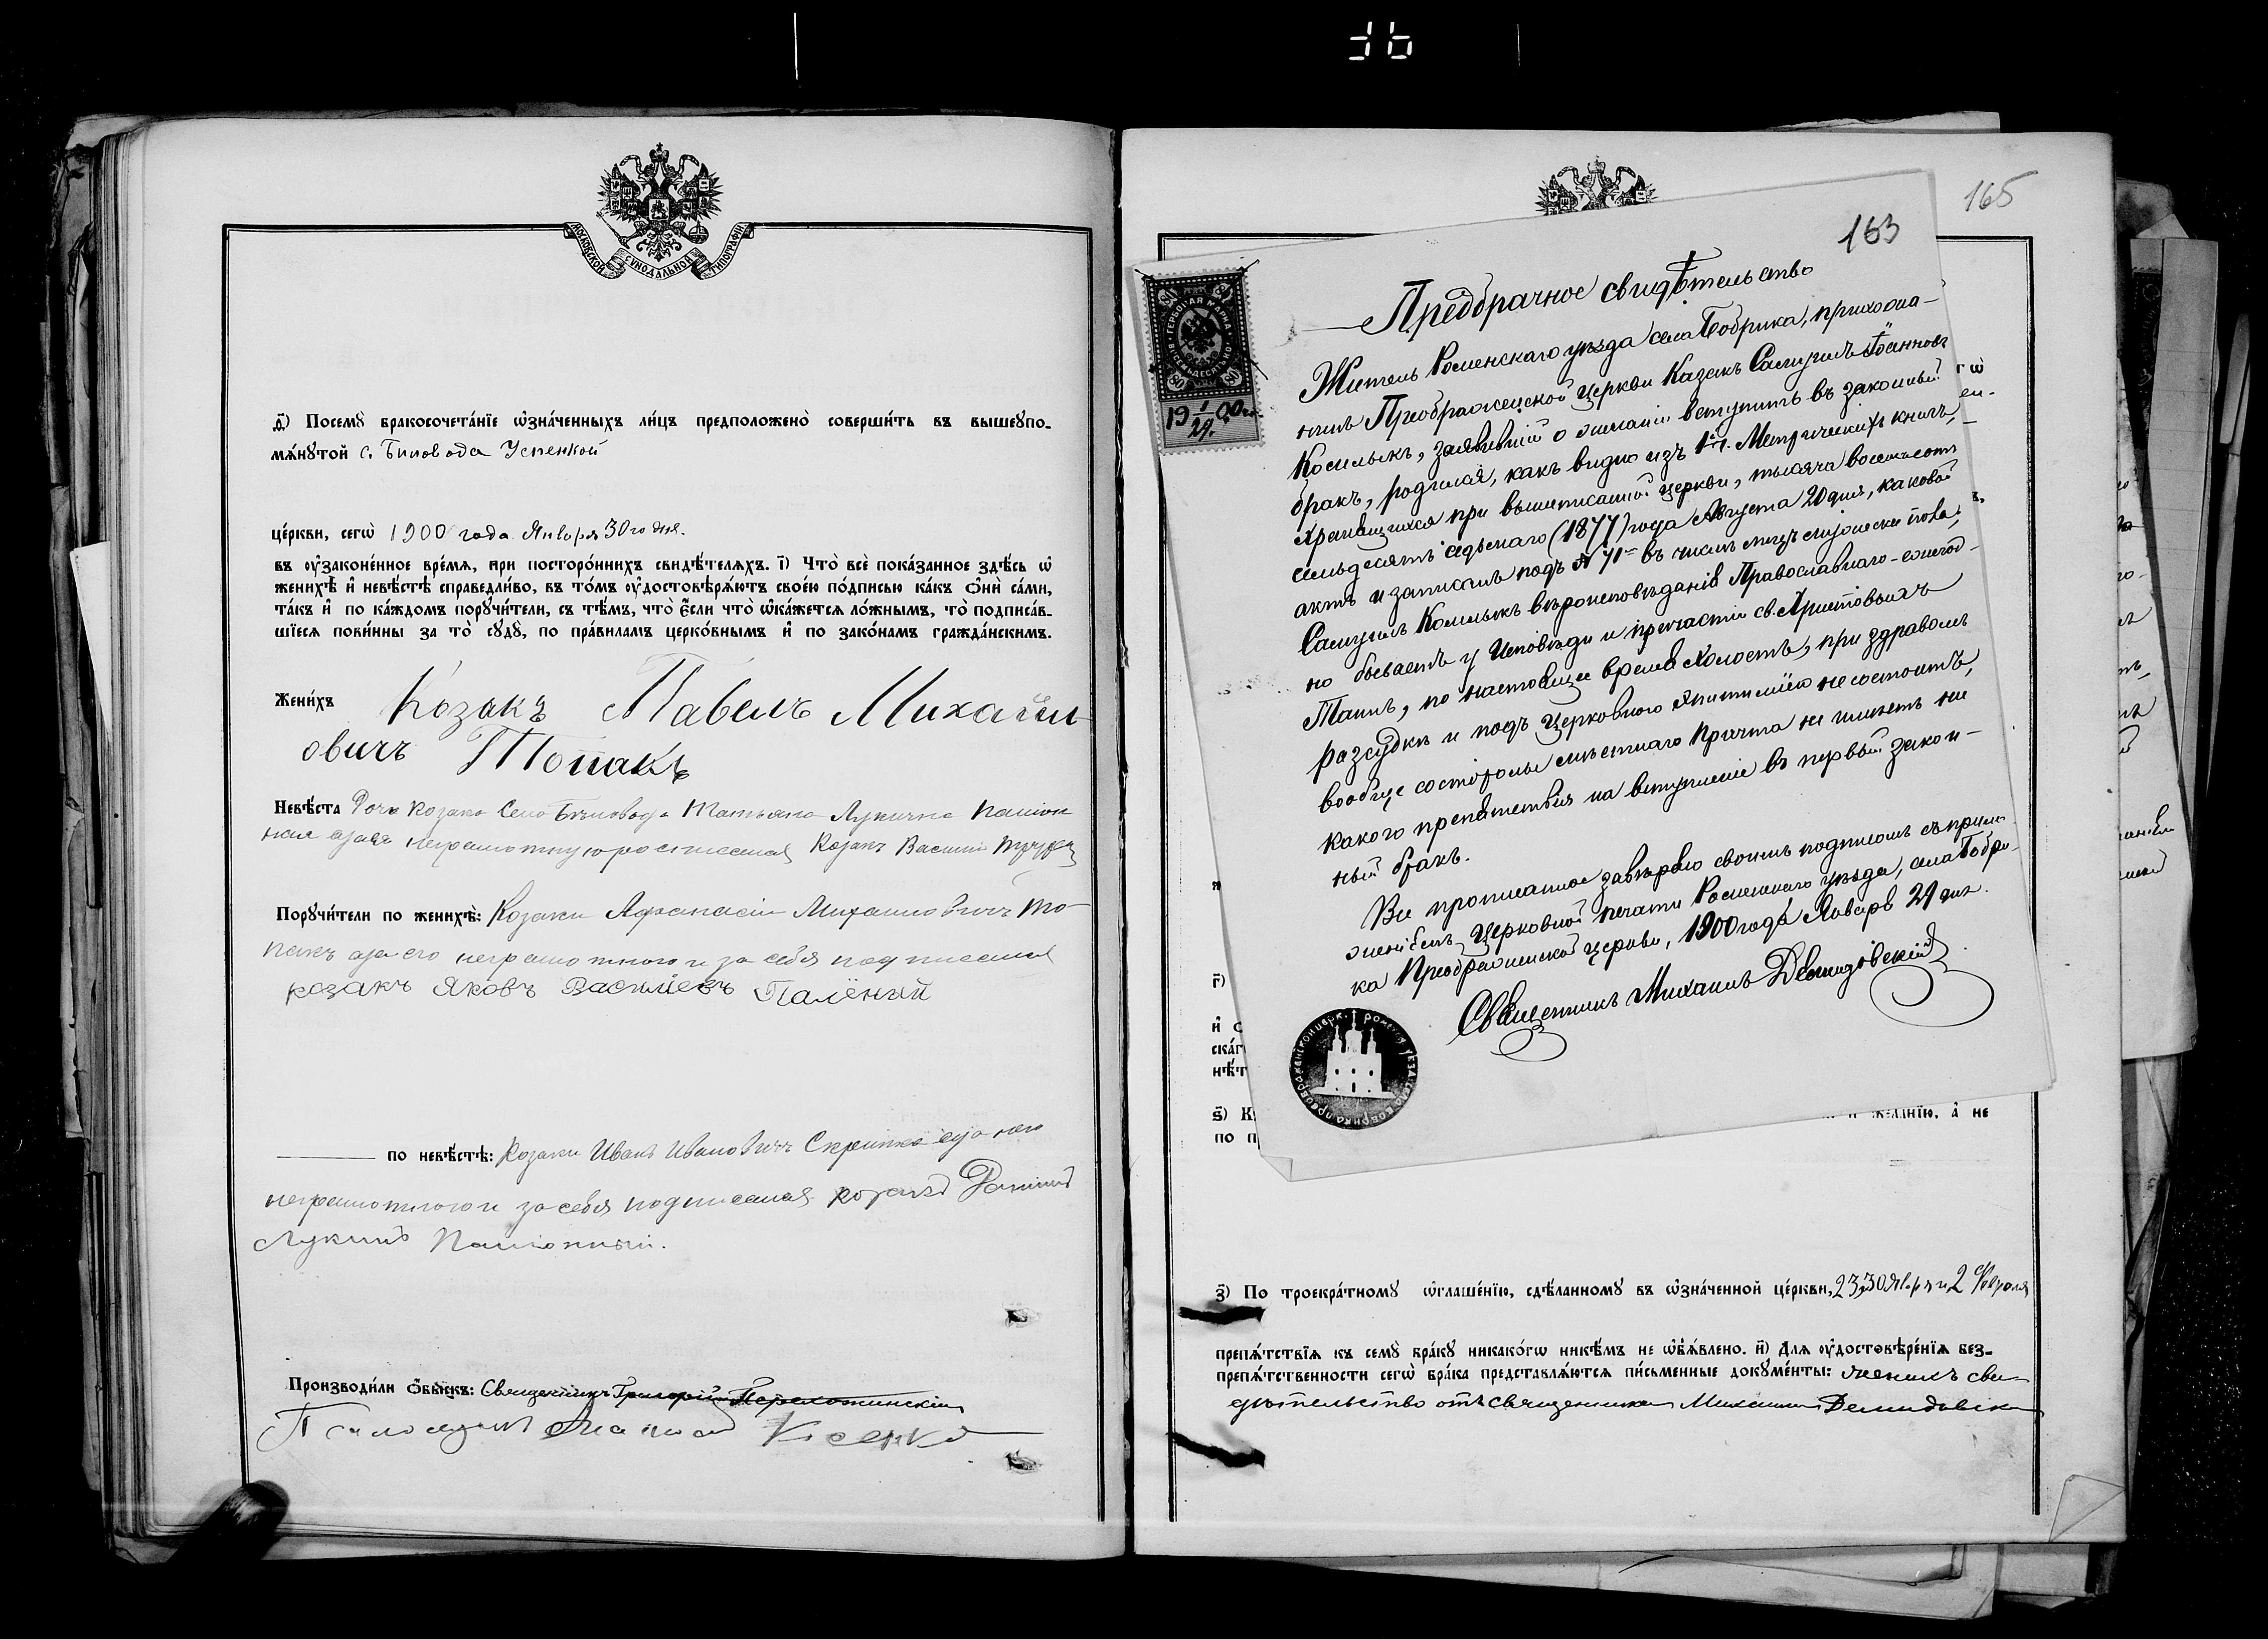 МОСКОВСКОЙ СѴНОДАЛЬНОЙ ТИПОГРАФІИ
д҃) Посемꙋ̀ бракосочета́нїе ѡ҆зна́ченныхъ ли́цъ предположено̀ соверши́ть въ вышеꙋпо-
мѧ́нꙋтой с. Биловода Успенкой
це́ркви, сегѡ̀ 1900 года Января 30го дня.
въ ᲂу҆зако́не́нное вре́мѧ, при посторо́ннихъ свидѣ́телѧхъ. і҃) Что̀ всѐ пока́занное здѣ́сь ѡ҆
женихѣ̀ и҆ невѣ́стѣ справедли́во, въ то́мъ ᲂу҆достовѣрѧ́ютъ свое́ю по́дписью ка́къ ѻ҆нѝ са́ми,
та́къ и҆ по ка́ждомъ порꙋчи́тели, съ тѣ́мъ, что̀ є҆́сли что̀ ѡ҆ка́жется ло́жнымъ, то̀ подписа́в-
шїеся пови́нны за то̀ сꙋдꙋ̀, по пра́виламъ церко́внымъ и҆ по зако́намъ гражда́нскимъ.
Жени́хъ Козакъ Павелъ Михайил-
овичъ Топакъ
Невѣ́ста Дочь козака Села Бѣловода Татьяна Лукична
неграмотную росписался Козакъ Василий
Порꙋчи́тели по женихѣ̀: Козаки Афанасій Михаиловичъ То-
пакъ а за его неграмотного и за себя подписался
козакъ Яковъ Василіевъ Палёный
по невѣ́стѣ: Козаки Иванъ Ивановичъ Скрипка а за него
неграмотного и за себя подписался козакъ Даниил
Лукинъ
Производи́ли ѻ҆́быскъ: Священникъ Григорій
165
163
ГЕРБОВАЯ МАРКА ВОСЕМЬДЕСЯТЪ КОП.
80
19 1/29 00 г.
Предбрачное свидѣтельство
Житель Роменскаго уѣзда села Бобрика, прихожа-
нинъ Преображенской церкви Казакъ Самуилъ Іоанновъ
Комлыкъ, заявившій о желаніи вступить въ законный
бракъ, родился, какъ видно изъ 1й ч. Метрическихъ книгъ,
хранящихся при вышеписанной церкви, тысяча восемьсотъ
семьдесятъ седьмаго (1877) года Августа 20 дня, каковой
актъ и записанъ подъ № 71м въ числѣ лицъ мужеска пола;
Самуилъ Комлыкъ вѣроисповѣданія Православнаго ежегод-
но бываетъ у Исповѣди и причастія св. Христовыхъ
Таинъ, по настоящее время холостъ, при здравомъ
разсудкѣ и подъ церковною эпитиміею не состоитъ,
вообще со стороны мѣстнаго причта не имѣетъ ни
какого препятствія на вступленіе въ первый закон-
ный бракъ.
Все прописанное завѣряю своимъ подписомъ съ прило-
женіемъ церковной печати Роменскаго уѣзда, села Бобри-
ка Преображенской церкви, 1900 года Января 29 дня.
Священникъ Михаилъ Демидовскій
г҃)
ѕ҃) К
желанїю, а҆ не
по п
з҃) По троекра́тномꙋ ѡ҆глаше́нїю, сдѣ́ланномꙋ въ ѡ҆зна́ченной це́ркви, 23, 30 Янвря и 2 Февраля
препѧ́тствїѧ къ семꙋ̀ бра́кꙋ никако́гѡ никѣ́мъ не ѡ҆б̾ѧ́влено. и҃) Длѧ ᲂу҆достовѣре́нїѧ без-
препѧ́тственности сегѡ̀ бра́ка представлѧ́ются пи́сьменные докꙋме́нты: женихъ сви-
дѣтельство отъ священника Михаила Демидовска